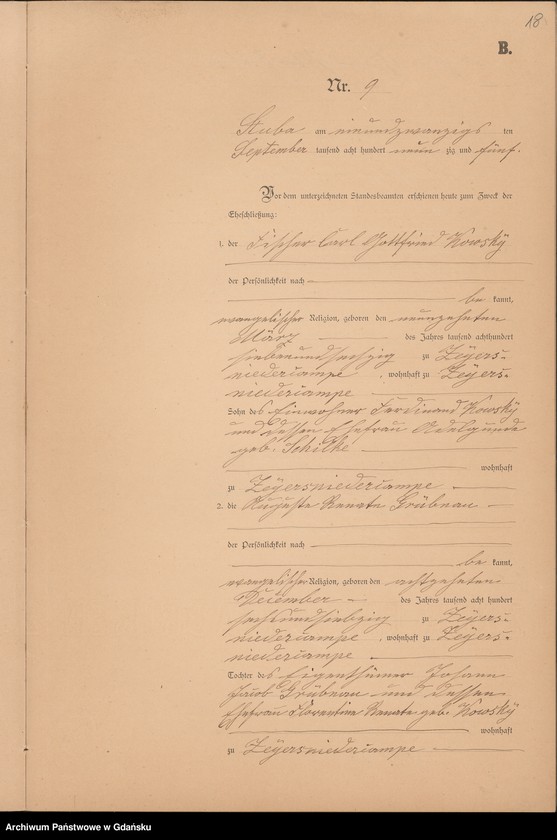 18
B.
Nr. 9
Stuba am neunundzwanzigs ten
September tausend acht hundert neun zig und fünf.
Vor dem unterzeichneten Standesbeamten erschienen heute zum Zweck der
Eheschließung:
1. der Fischer Carl Gottfried Kowsky
der Persönlichkeit nach
be kannt,
evangelischer Religion, geboren den neunzehnten
März des Jahres tausend achthundert
siebenundsechzig zu Zeyers-
niedercampe, wohnhaft zu Zeyers-
niedercampe
Sohn des Einwohner Ferdinand Kowsky
und dessen Ehefrau Adelgunde
geb. Schilke
wohnhaft
zu Zeyersniedercampe
2. die Auguste Renate Grübnau
der Persönlichkeit nach
be kannt,
evangelischer Religion, geboren den achtzehnten
Dezember des Jahres tausend acht hundert
sechsundsiebzig zu Zeyers-
niedercampe, wohnhaft zu Zeyers-
niedercampe
Tochter des Eigenthümer Johann
Jacob Grübnau und dessen
Ehefrau Florentine Renate geb. Kowsky
wohnhaft
zu Zeyersniedercampe
Archiwum Państwowe w Gdańsku